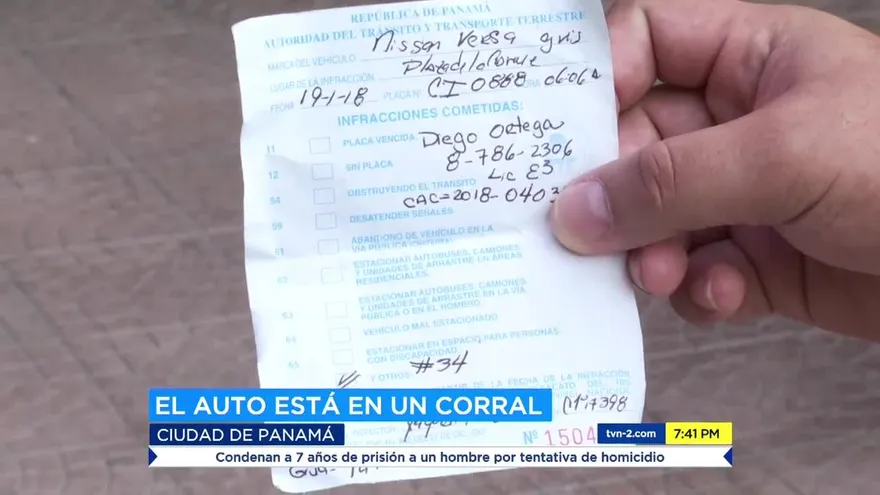 REPÚBLICA DE PANAMÁ
AUTORIDAD DEL TRÁNSITO Y TRANSPORTE TERRESTRE
MARCA DEL VEHÍCULO Nissan Versa gris
LUGAR DE LA INFRACCIÓN Plaza de la
FECHA 19-1-18 PLACA Nº CI0888 HORA 06:06A
INFRACCIONES COMETIDAS:
11 PLACA VENCIDA Diego Ortega
12 SIN PLACA 8-786-2306
Lic E3
54 OBSTRUYENDO EL TRÁNSITO
CAC=2018-0403
59 DESATENDER SEÑALES
61 ABANDONO DE VEHÍCULO EN LA
VÍA PÚBLICA
62 ESTACIONAR AUTOBUSES, CAMIONES
Y UNIDADES DE ARRASTRE EN ÁREAS
RESIDENCIALES.
63 ESTACIONAR AUTOBUSES, CAMIONES
Y UNIDADES DE ARRASTRE EN LA VÍA
PÚBLICA O EN EL HOMBRO.
64 VEHÍCULO MAL ESTACIONADO
65 ESTACIONAR EN ESPACIO PARA PERSONAS
CON DISCAPACIDAD
Y OTROS #34
DE LA FECHA DE LA INFRACCIÓN
EL AUTO ESTÁ EN UN CORRAL
7398
INSPECTOR
Nº 1504
CIUDAD DE PANAMÁ
tvn-2.com 7:41 PM
Condenan a 7 años de prisión a un hombre por tentativa de homicidio